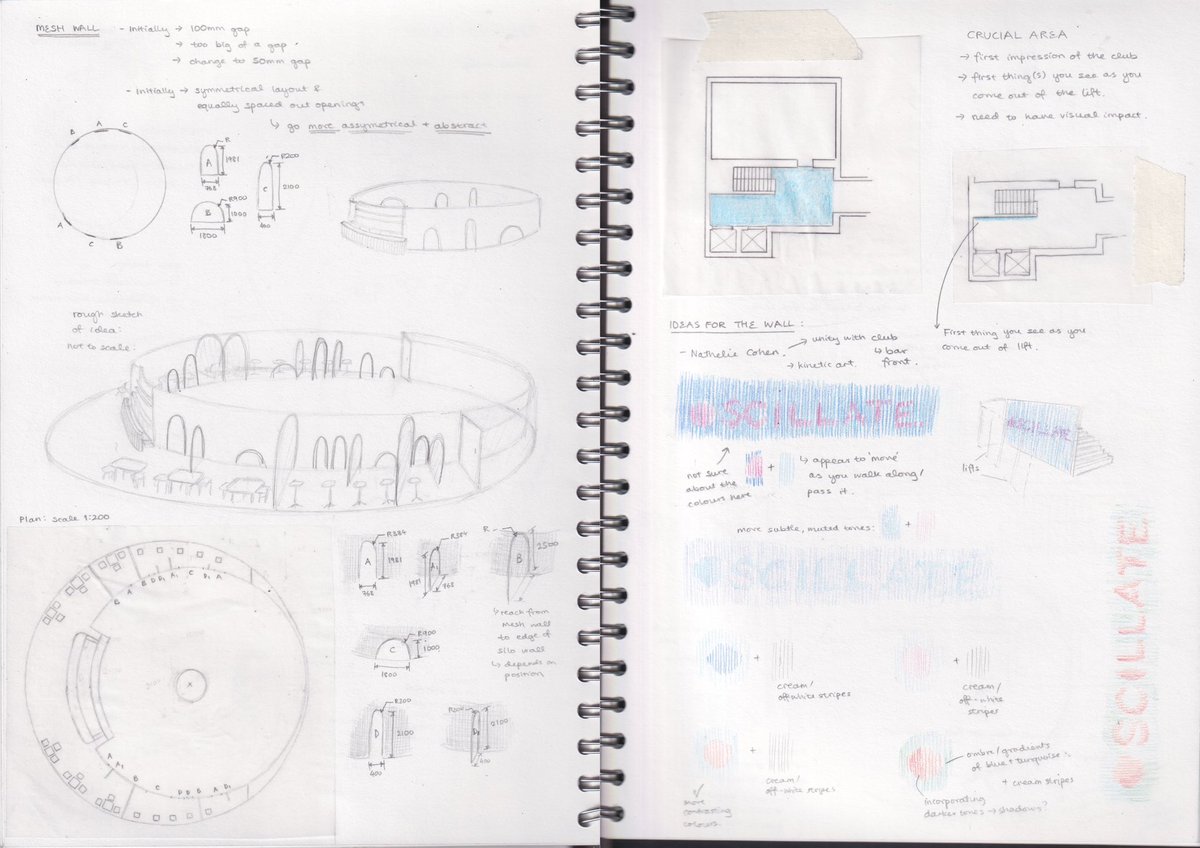 MESH WALL
- Initially → 100mm gap
→ too big of a gap.
→ change to 50mm gap
- Initially → symmetrical layout &
equally spaced out openings
↳ go more assymetrical + abstract
B A C
A C B
A
R
1981
768
B
R900
1000
1800
C
R200
2100
400
rough sketch
of idea:
not to scale.
Plan: scale 1:200
A
R384
1981
768
A1
R384
1981
768
B
R
2500
↳ reach from
Mesh wall
to edge of
silo wall
↳ depends on
position
C
R900
1000
1800
D
R200
2100
400
R200
2100
400
B A B D D1 A1 C D1 A
A A1 B C D D B A D1
x
CRUCIAL AREA
→ first impression of the club
→ first thing(s) you see as you
come out of the lift.
→ need to have visual impact.
First thing you see as you
come out of lift.
IDEAS FOR THE WALL:
- Nathelie Cohen.
→ unity with club
↳ bar
front.
→ kinetic art.
OSCILLATE
OSCILLATE
lifts
not sure
about the
colours here
+
↳ appears to 'move'
as you walk along/
pass it.
more subtle, muted tones:
+
OSCILLATE
+
cream/
off white stripes
+
cream/
off-white
stripes
+
cream/
off-white stripes
more
contrasting
colours.
ombre/gradients
of blue + turquoise
+ cream stripes
incorporating
darker tones → shadows?
OSCILLATE